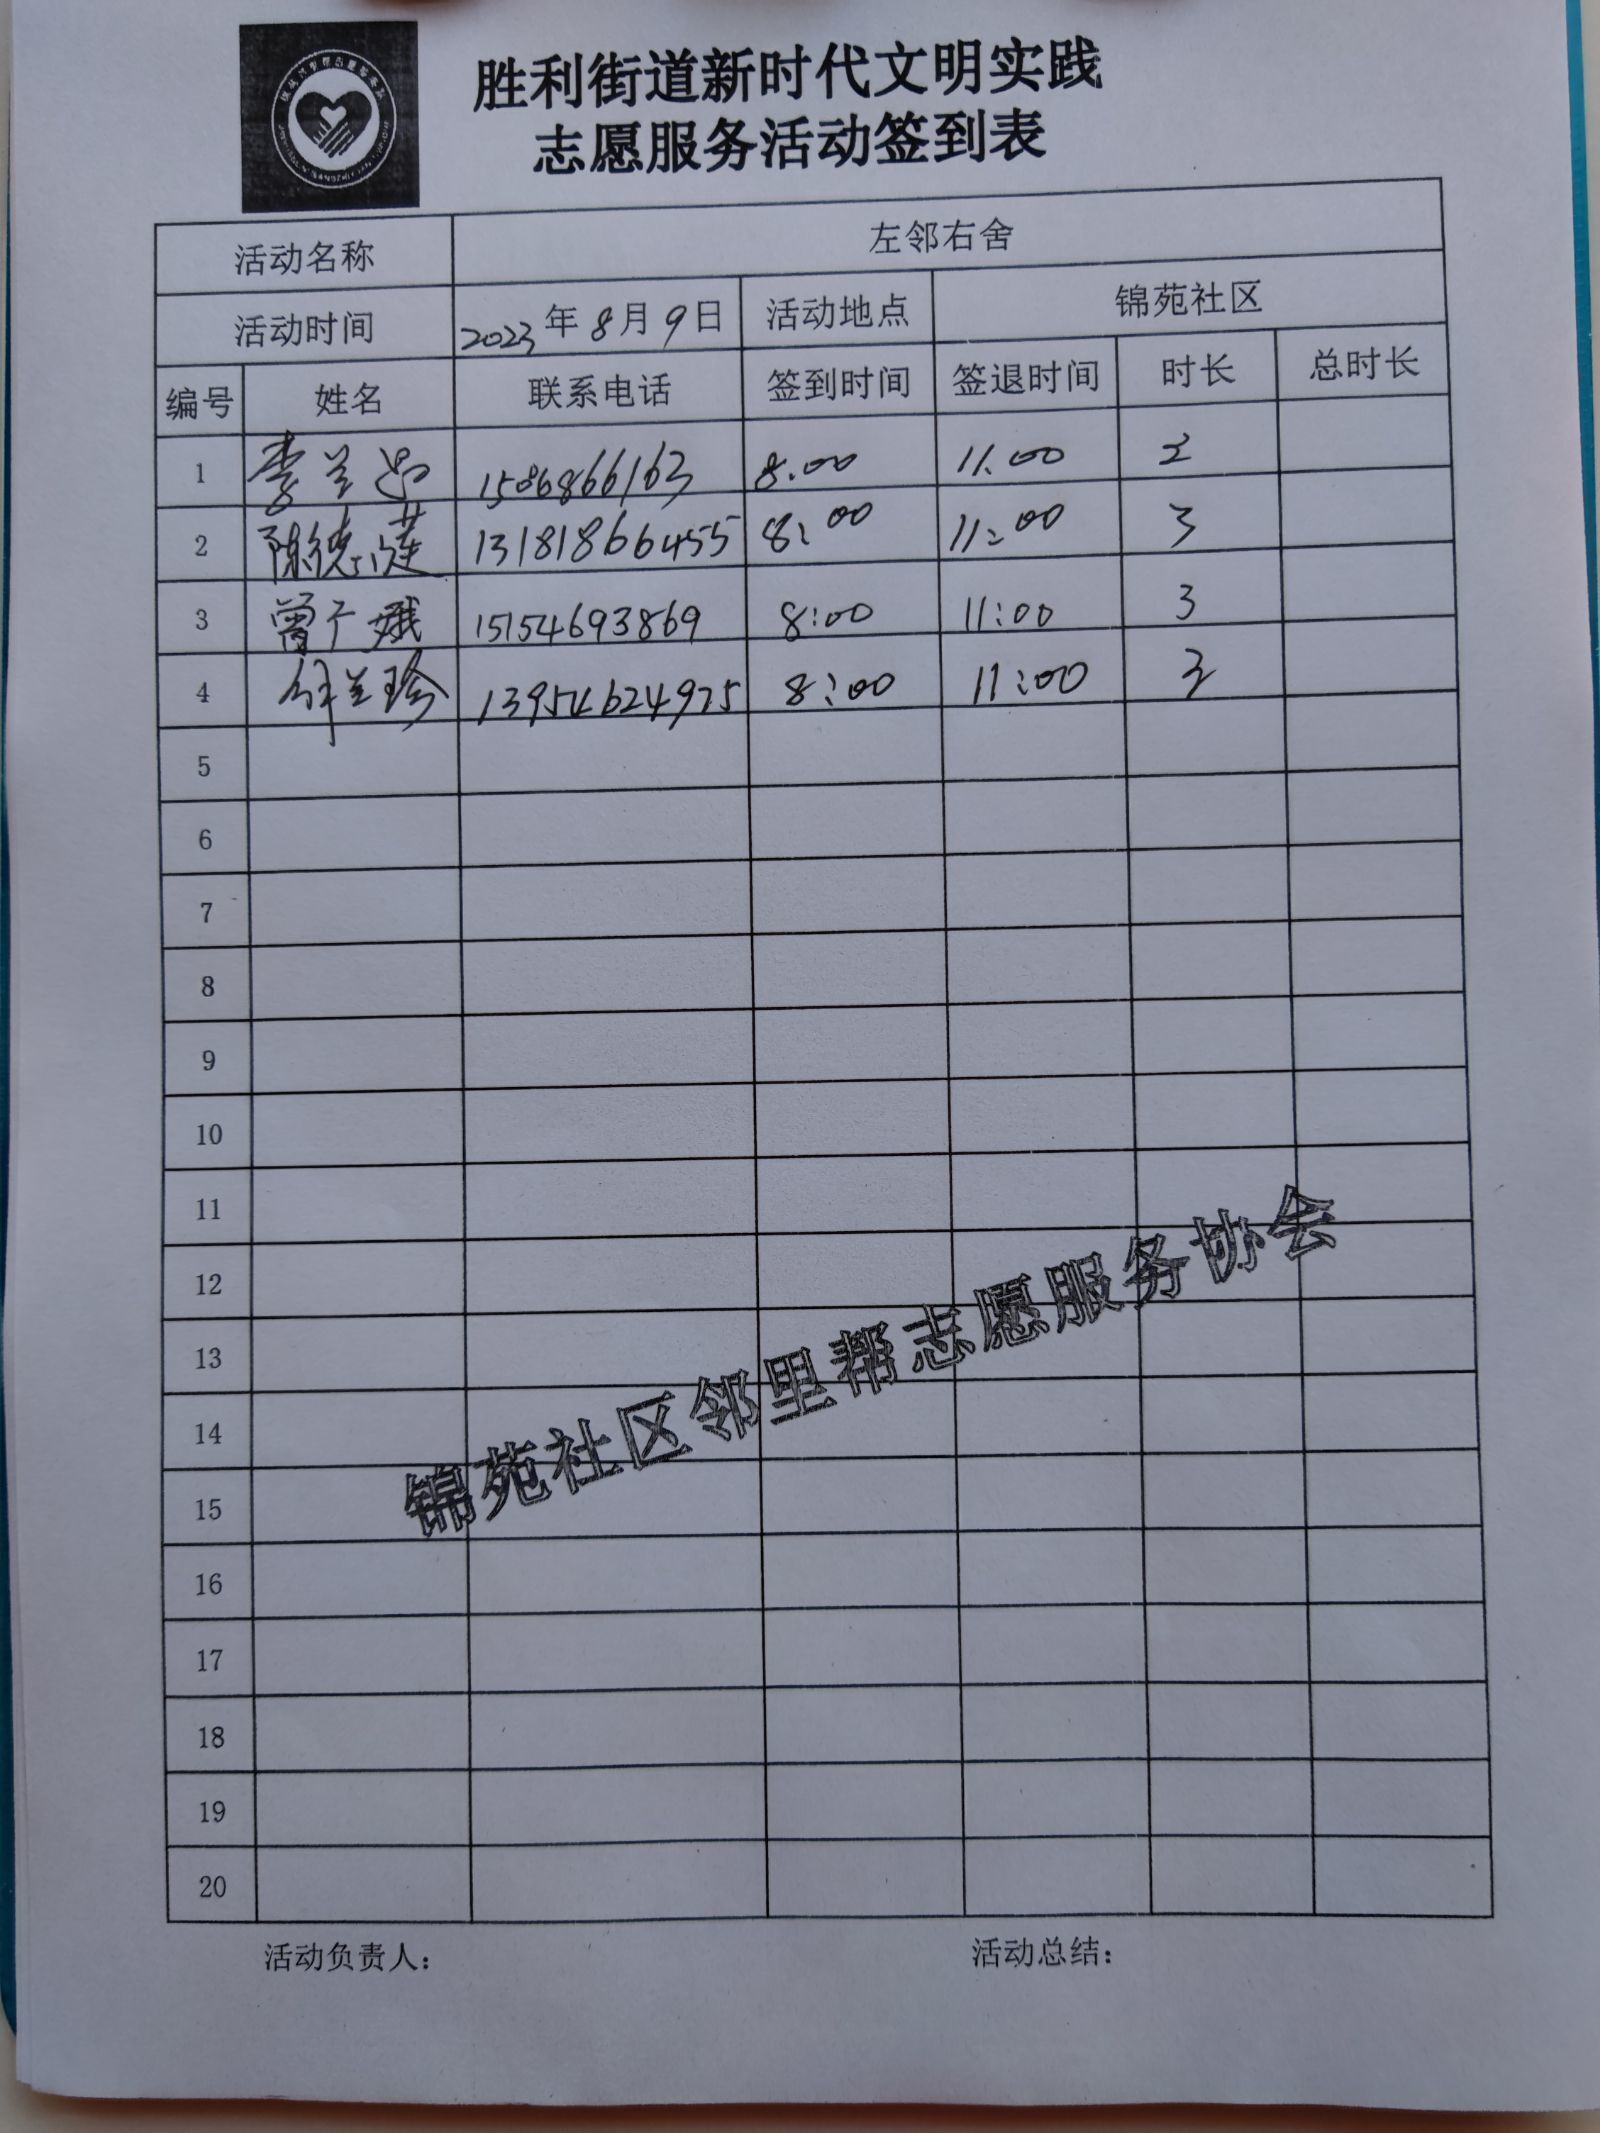 胜利街道新时代文明实践
志愿服务活动签到表
活动名称 左邻右舍
活动时间 2023年8月9日 活动地点 锦苑社区
编号 姓名 联系电话 签到时间 签退时间 时长 总时长
1 李兰 15086866163 8:00 11:00 2
2 陈德莲 13181866455 8:00 11:00 3
3 曾广娥 15154693869 8:00 11:00 3
4 兰珍 13954624975 8:00 11:00 3
5
6
7
8
9
10
11
12
13
14
15
16
17
18
19
20
锦苑社区邻里帮志愿服务协会
活动负责人： 活动总结：